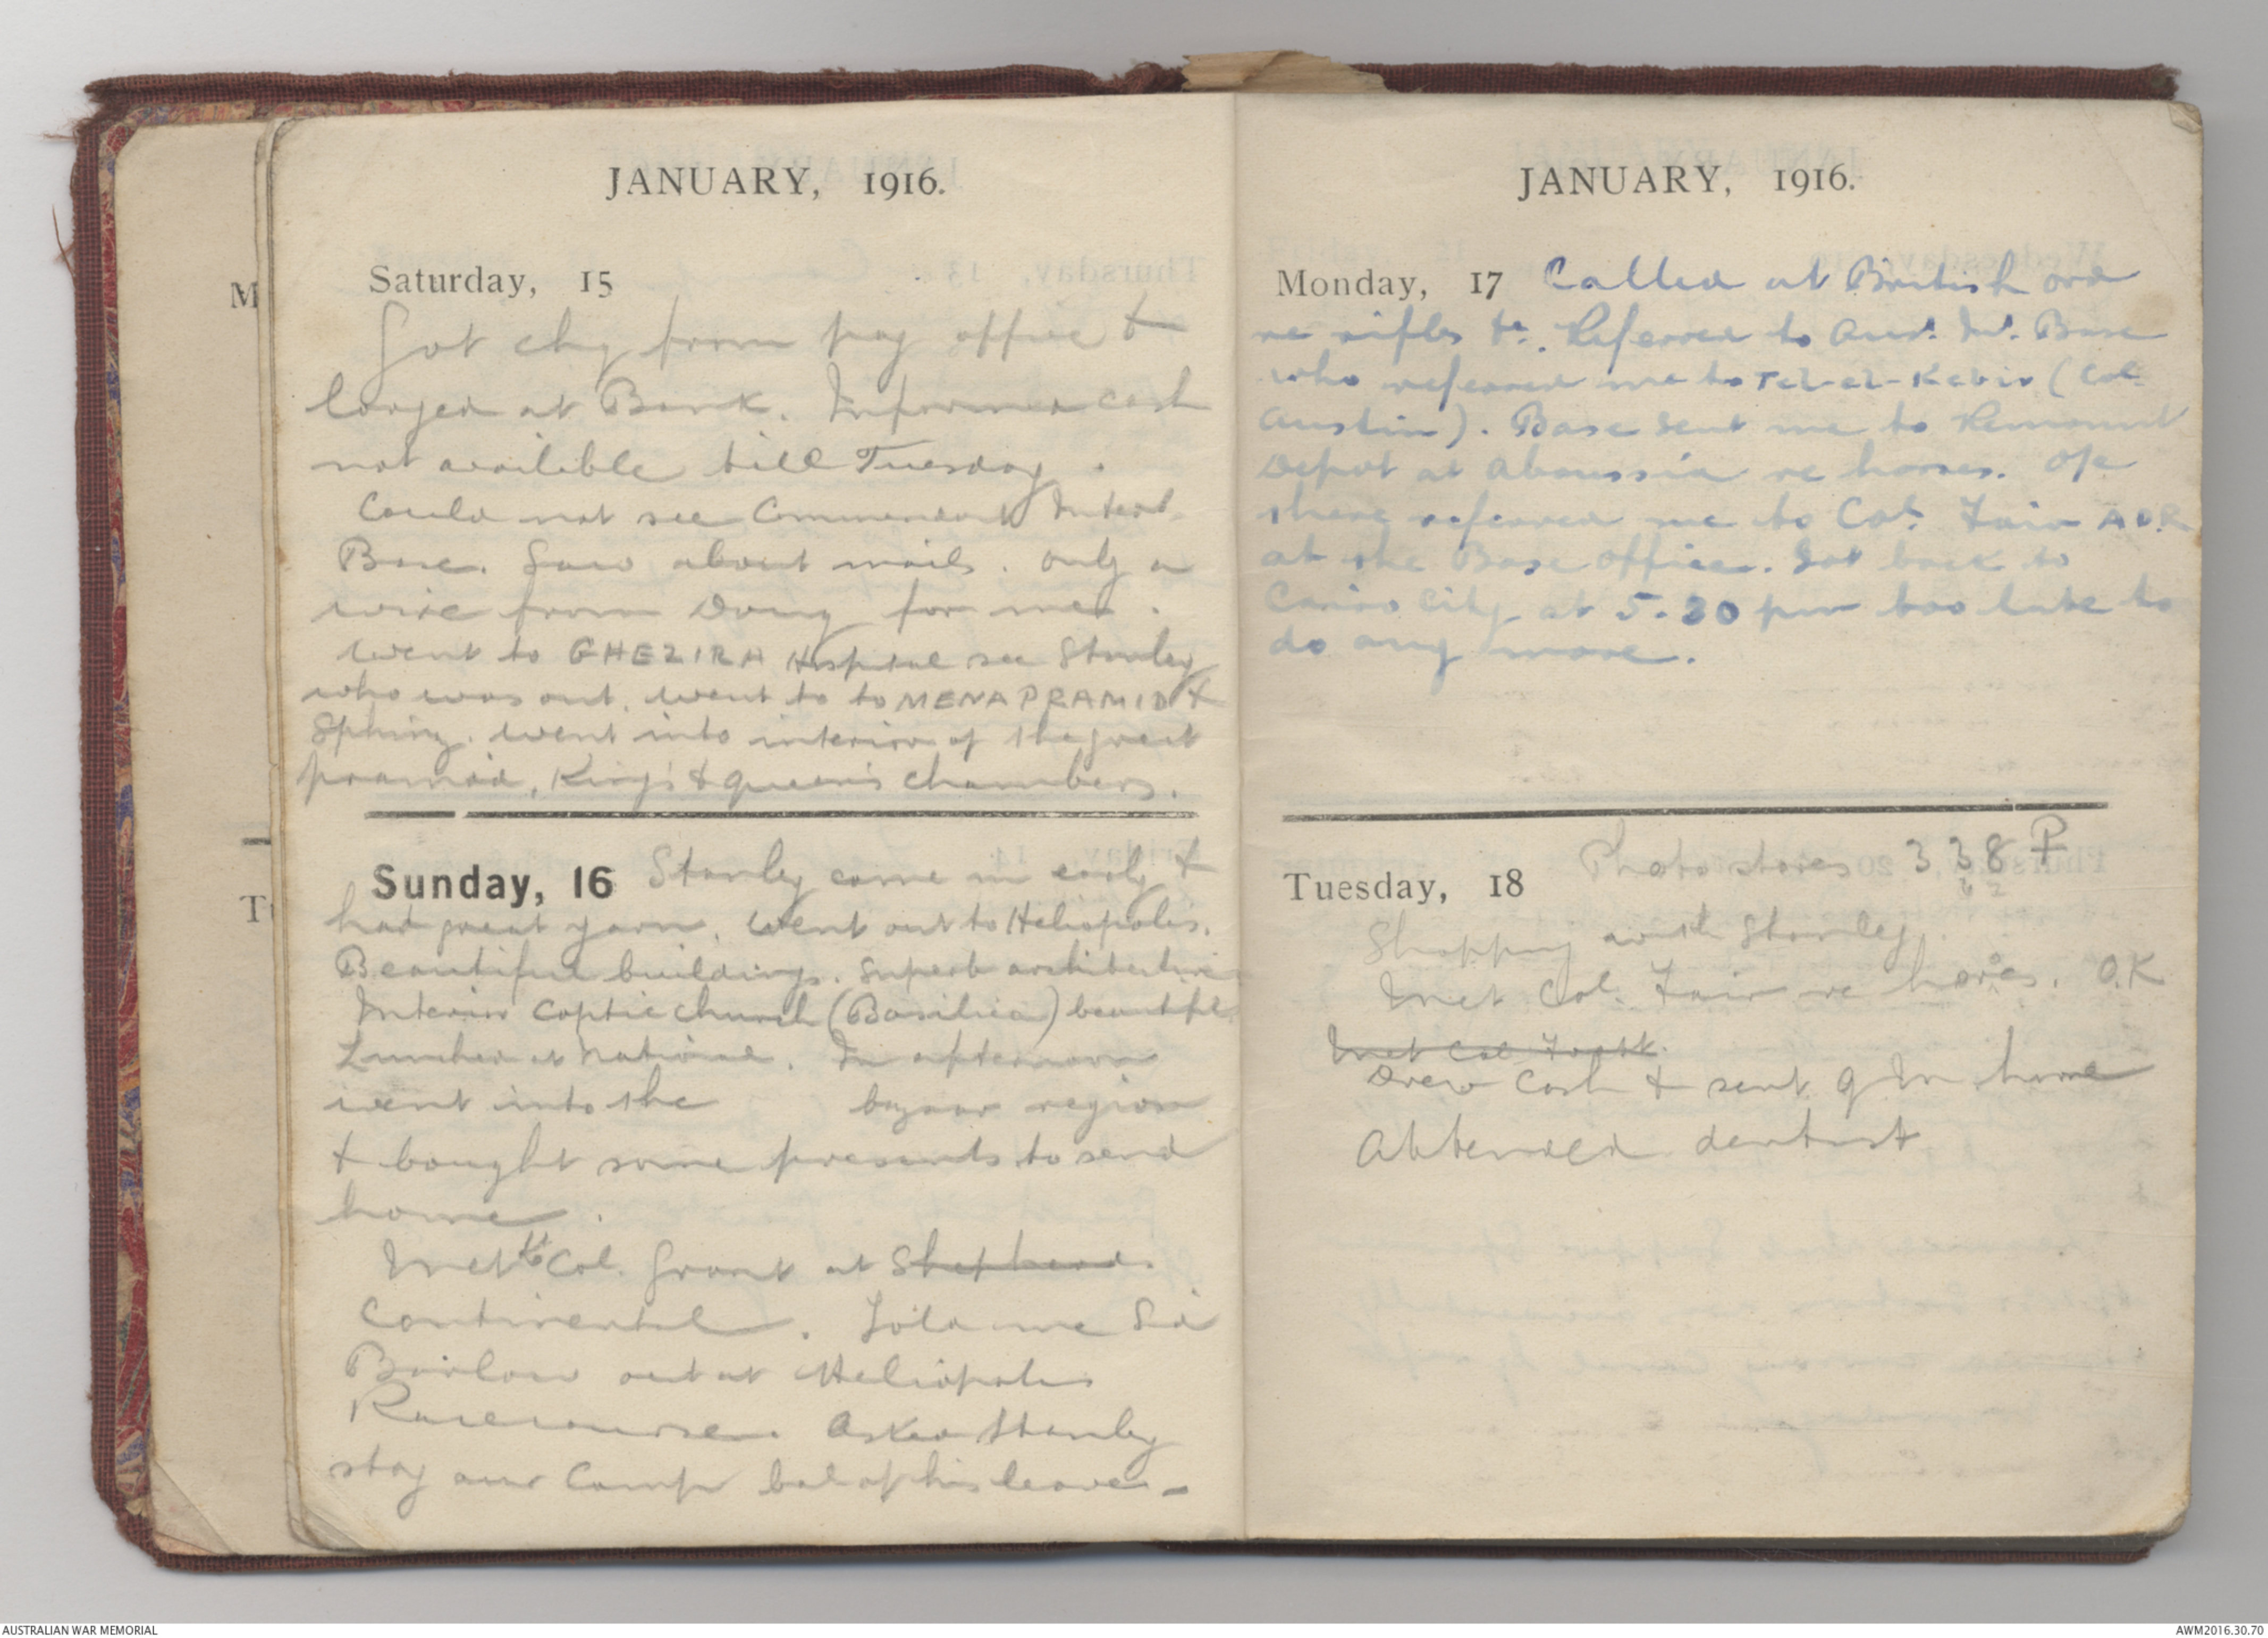 JANUARY, 1916.
Saturday, 15
Got chq from pay office &
lodged at Bank. Informed cash
not available till Tuesday.
Could not see Commandant Interd.
Base. Saw about mails. Only a
wire from Doug for me.
Went to GHEZIRA Hospital see Stanley
who was out. went to to MENA PRAMID &
Sphinx. Went into interior of the great
pramid, King's & queen's chambers.
Sunday, 16 Stanley came in early &
had great yarn. Went out to Heliopolis.
Beautiful buildings. Superb architecture
Interior Coptic Church (Basilica) beautiful
Lunched at National. In afternoon
went into the bazaar region
& bought some presents to send
home.
Met Col. Grant at Shepheards
Continental. Told me Sid
Barlow out at Heliopolis
Racecourse. Asked Stanley
stay our Camp bal of his leave -
JANUARY, 1916.
Monday, 17 Called at British ord
re rifles &c. Referred to Aus. Int. Base
who referred me to Tel-el-Kebir (Col.
Austin). Base sent me to Remount
Depot at Abaussia re horses. Ofc
there referred me to Col. Fair ADR
at the Base Office. Got back to
Cairo City at 5.30 pm too late to
do any more.
Photo stores 338 P
32
Tuesday, 18
Shopping with Stanley
Met Col. Fair re horses. O.K
Met Col
Drew Cash & sent home
Attended dentist
M
T
AUSTRALIAN WAR MEMORIAL
AWM2016.30.70